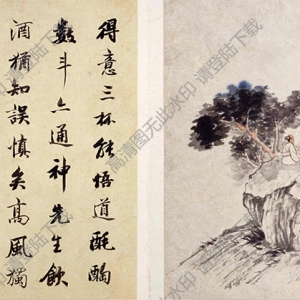 得意三杯能悟道酕醄
数斗亦通神先生飲
酒猶知誤慎矣高風獨
高清图无此水印 请登陆下载
高清图无此水印 请登陆下载